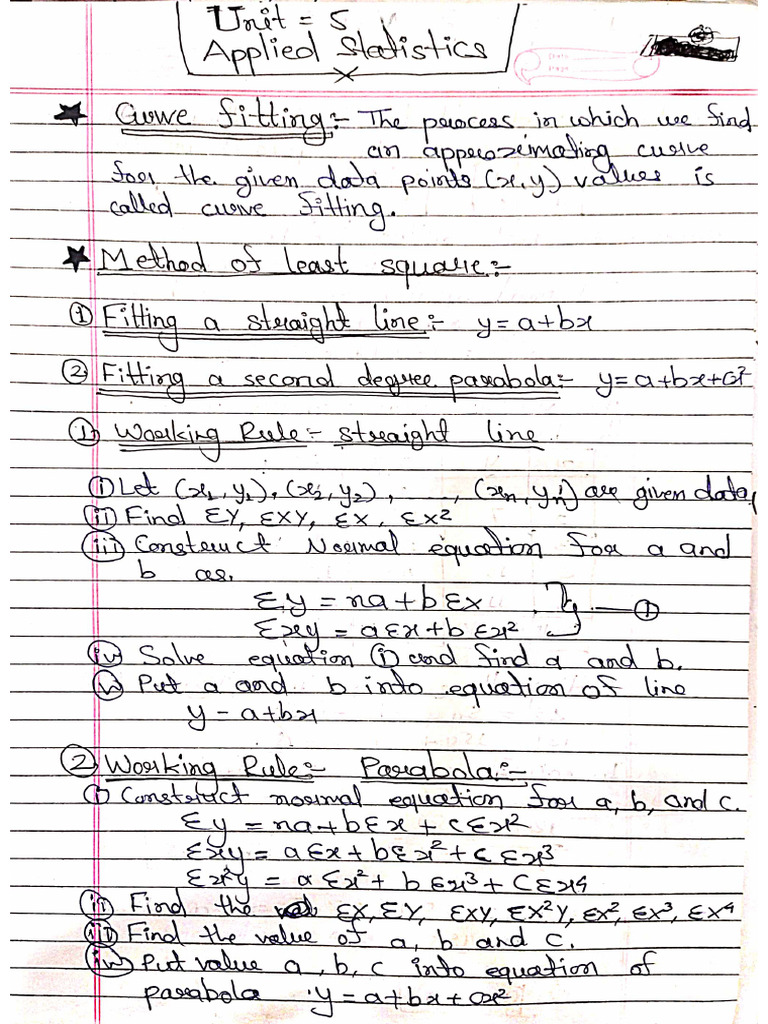 Unit = 5
Applied Statistics
★ Curve fitting:- The process in which we find
an approximating curve
for the given data points (x,y) values is
called curve fitting.
★ Method of least square:-
① Fitting a straight line:- y=a+bx
② Fitting a second degree parabola:- y=a+bx+cx²
① Working Rule:- straight line
(i) Let (x₁,y₁), (x₂,y₂), ......, (xₙ,yₙ) are given data
(ii) Find ΣY, ΣXY, ΣX, ΣX²
(iii) Construct Normal equation for a and
b as.
Σy = na+bΣx
① 
Σxy = aΣx+bΣx²
(iv) Solve equation ① and find a and b.
(v) Put a and b into equation of line
y - a+bx
② Working Rule:- Parabola:-
(i) Construct normal equation for a, b, and c.
Σy = na+bΣx + cΣx²
Σxy = aΣx+bΣx²+c Σx³
Σx²y = a Σx²+ bΣx³+CΣx⁴
(ii) Find the ΣX, ΣY, ΣXY, ΣX²Y, Σx², Σx³, ΣX⁴
(iii) Find the value of a, b and c.
(iv) Put value a, b, c into equation of
parabola y=a+bx+cx²